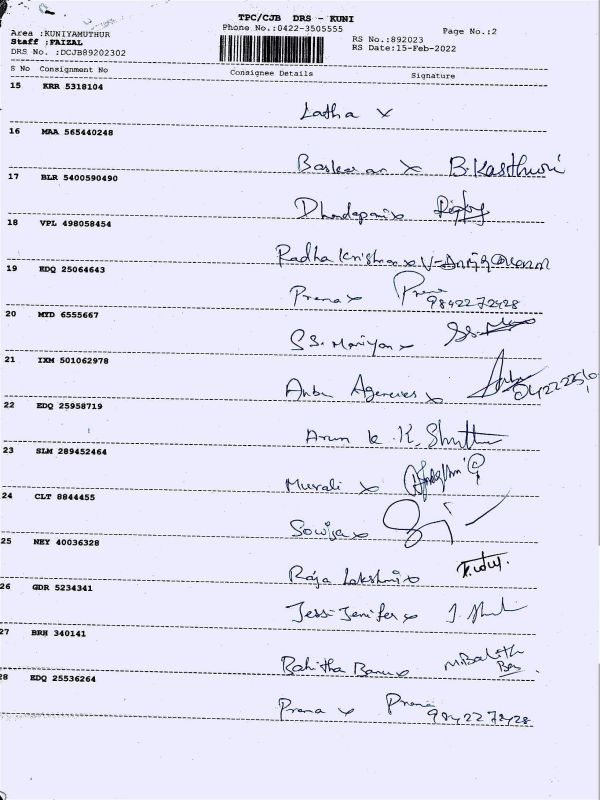 TPC/CJB DRS - KUNI
Phone No.:0422-3505555
Page No.:2
Area :KUNIYAMUTHUR
Staff :FAIZAL
DRS No. :DCJB89202302
RS No.:892023
RS Date:15-Feb-2022
S No Consignment No Consignee Details Signature
15 KRR 5318104
Latha x
16 MAA 565440248
Baskaran x B.Kasthuri
17 BLR 5400590490
Dhandapani x
18 VPL 498058454
Radha Krishnan x
19 EDQ 25064643
Prema x Prema
9842272428
20 MYD 6555667
SS. Mariyan x SS.
21 IXM 501062978
Anbu Agencies x
22 EDQ 25958719
Arun k K.
23 SLM 289452464
Murali x
24 CLT 8844455
Sowija x
25 NEY 40036328
Raja Lakshmi x
26 GDR 5234341
Jessi Jenifer x J.
27 BRH 340141
Bahitha Banu x
28 EDQ 25536264
Prema x Prema
9842272428